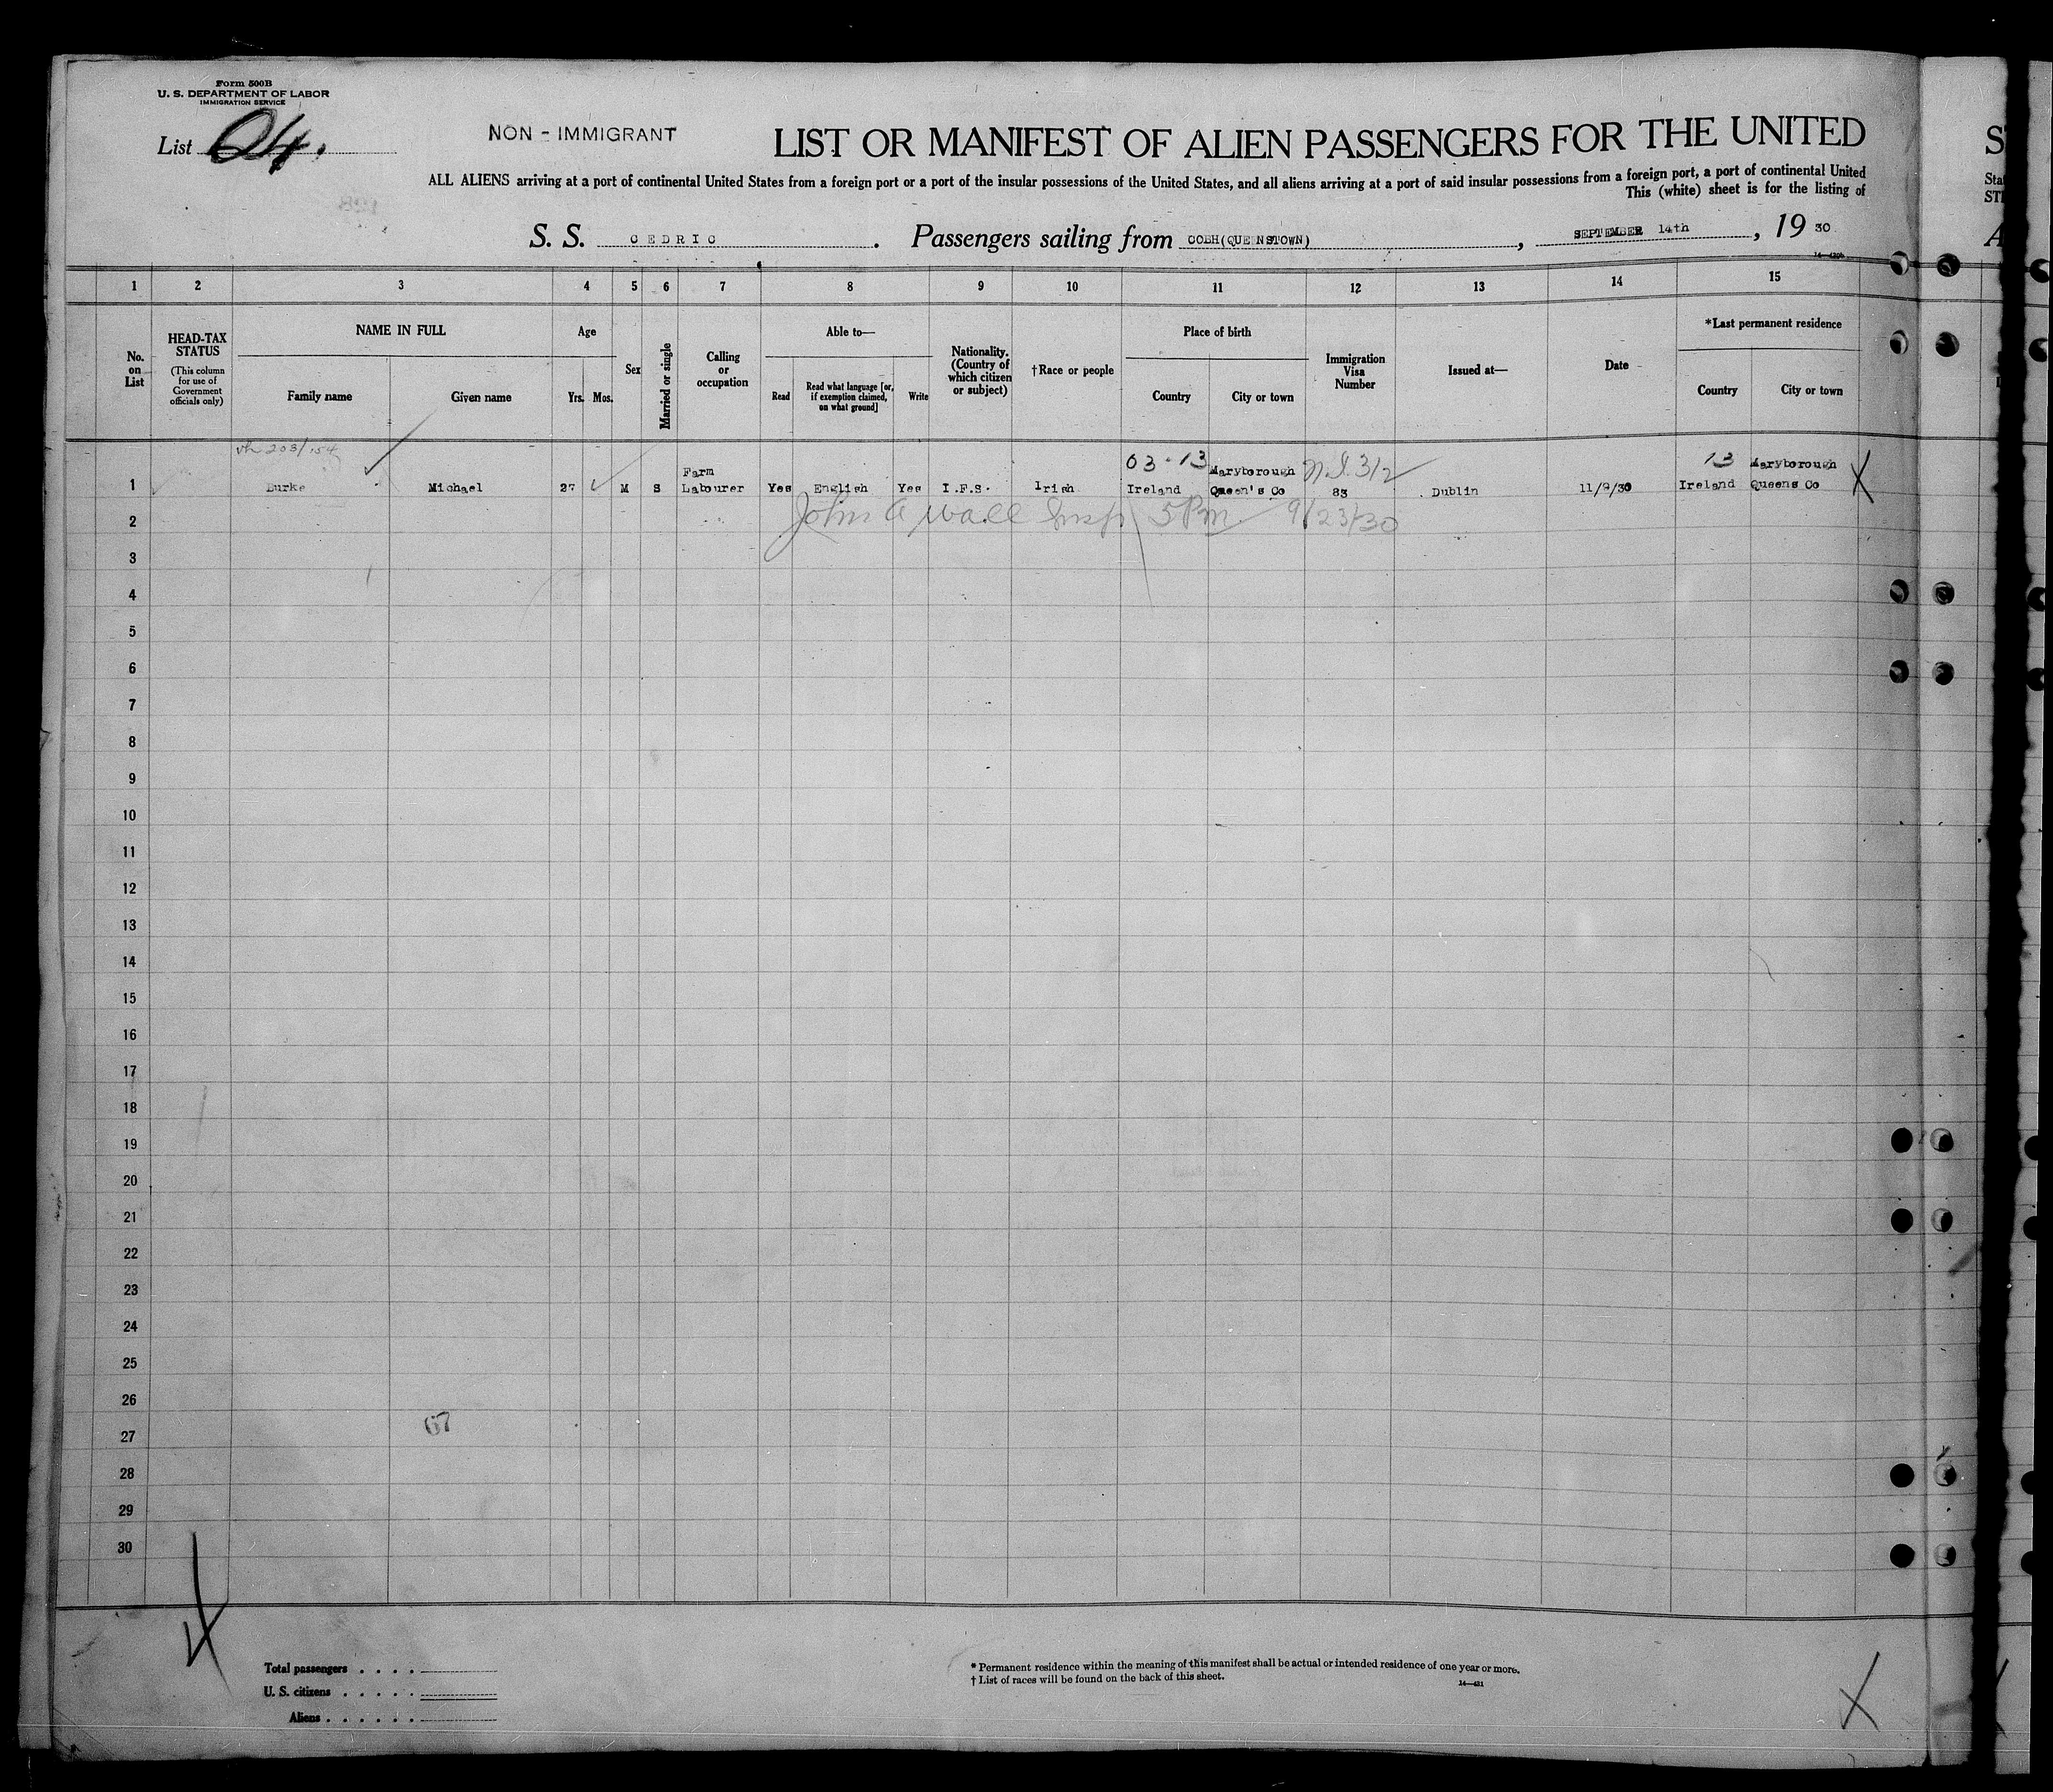 Form 500B
U. S. DEPARTMENT OF LABOR
IMMIGRATION SERVICE
List 24.
NON - IMMIGRANT
LIST OR MANIFEST OF ALIEN PASSENGERS FOR THE UNITED
ALL ALIENS arriving at a port of continental United States from a foreign port or a port of the insular possessions of the United States, and all aliens arriving at a port of said insular possessions from a foreign port, a port of continental United
This (white) sheet is for the listing of
S. S. CEDRIC. Passengers sailing from COBH(QUEENSTOWN), SEPTEMBER 14th, 19 30
1 2 3 4 5 6 7 8 9 10 11 12 13 14 15
No. on List
HEAD-TAX STATUS
(This column for use of Government officials only)
NAME IN FULL
Family name
Given name
Age
Yrs. Mos.
Sex
Married or single
Calling or occupation
Able to—
Read
Read what language [or, if exemption claimed, on what ground]
Write
Nationality. (Country of which citizen or subject)
†Race or people
Place of birth
Country
City or town
Immigration Visa Number
Issued at—
Date
*Last permanent residence
Country
City or town
03-13 N.I. 3/2 13
1 Burke Michael 27 M S Farm Labourer Yes English Yes I.F.S. Irish Ireland Maryborough Queen's Co 83 Dublin 11/9/30 Ireland Maryborough Queens Co X
2 John A Wall Insp 5 Pm 9/23/30
3
4
5
6
7
8
9
10
11
12
13
14
15
16
17
18
19
20
21
22
23
24
25
26
27
28
29
30
Total passengers . . . .
U. S. citizens . . . . .
Aliens . . . . . .
* Permanent residence within the meaning of this manifest shall be actual or intended residence of one year or more.
† List of races will be found on the back of this sheet.
14—431
X